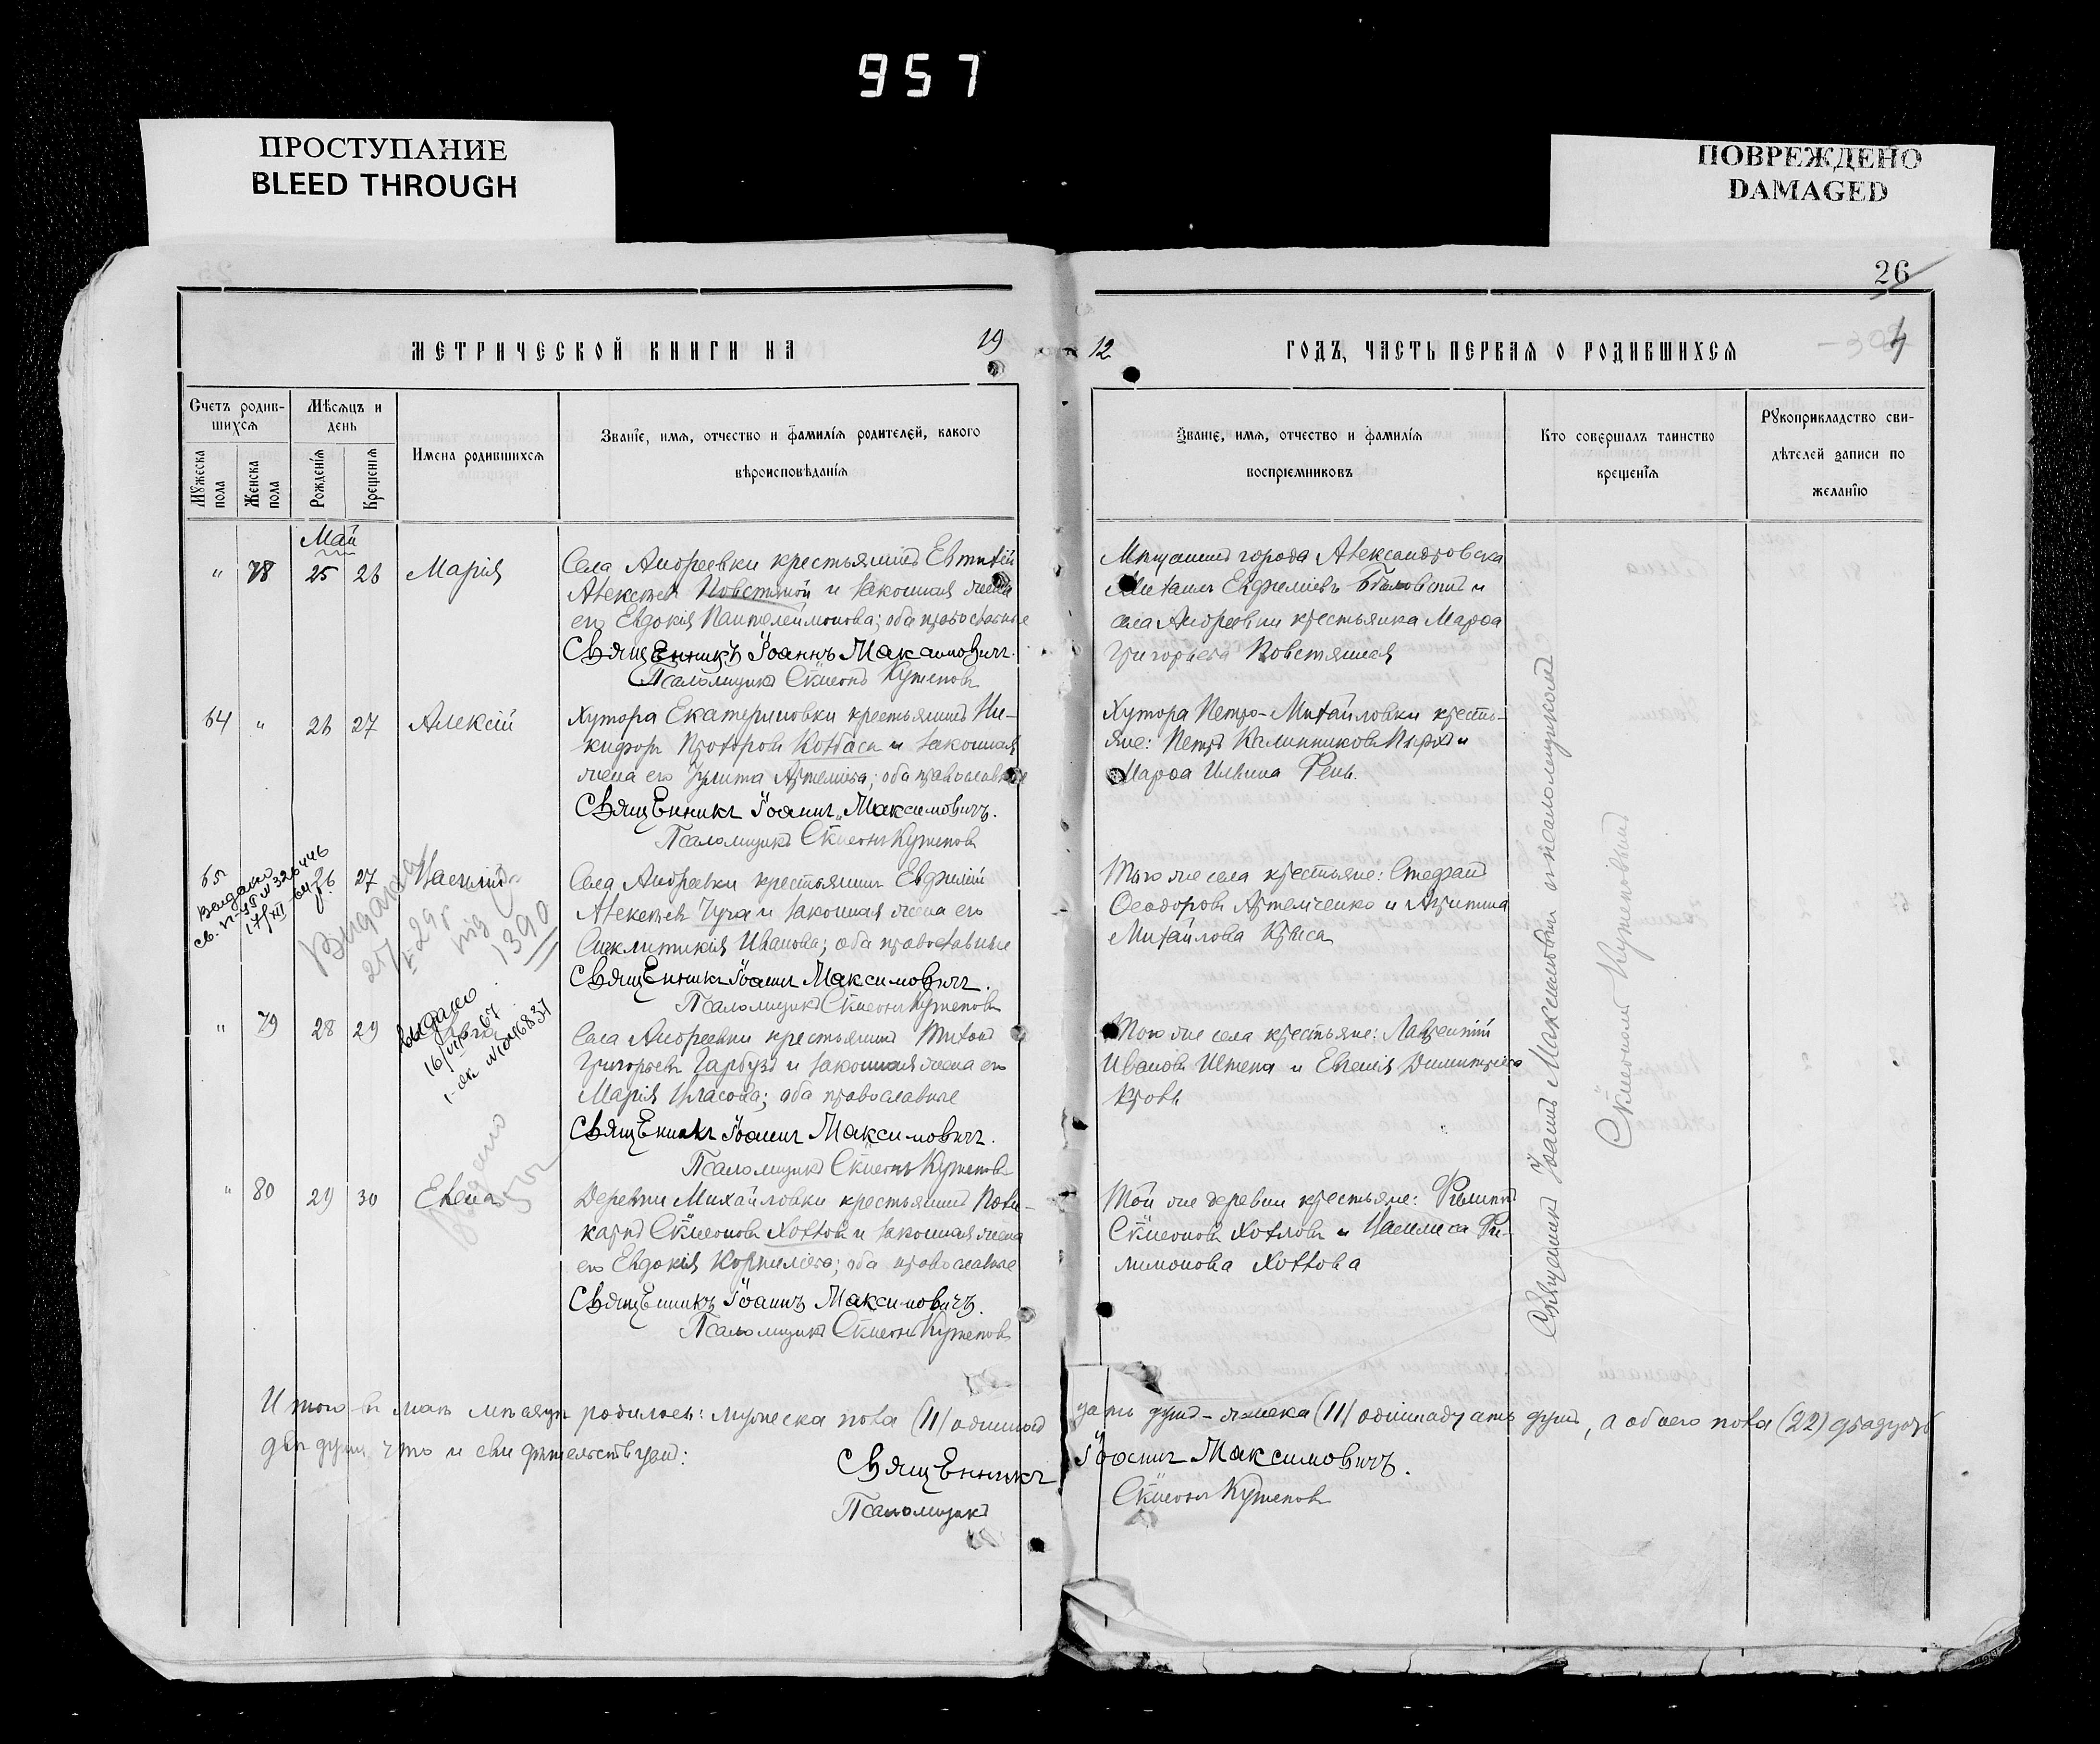 957
ПРОСТУПАНИЕ
BLEED THROUGH
ПОВРЕЖДЕНО
DAMAGED
26
МЕТРИЧЕСКОЙ КНИГИ НА 19
12 ГОДЪ, ЧАСТЬ ПЕРВАЯ О РОДИВШИХСЯ
Счетъ родив-
шихся
Мѣсяцъ и
день
Мужеска пола
Женска пола
Рожденія
Крещенія
Имена родившихся
Званіе, имя, отчество и фамилія родителей, какого
вѣроисповѣданія
Званіе, имя, отчество и фамилія
воспріемниковъ
Кто совершалъ таинство
крещенія
Рукоприкладство сви-
дѣтелей записи по
желанію
Май
" 78 25 26 Марія
Села Андреевки крестьянинъ Евтихій
Алексѣевъ Повстяной и законная жена
его Евдокія Пантелеймонова; оба православные
Священникъ Іоаннъ Максимовичъ.
Псаломщикъ Сѵмеонъ Кутеповъ
Мѣщанинъ города Александровска
Михаилъ Евфиміевъ и
села Андреевки крестьянка Марѳа
Григорьева Повстяная
64 " 26 27 Алексій
Хутора Екатериновки крестьянинъ Ни-
кифоръ Прохоровъ Колбаса и законная
жена его Іулита Артемьева; оба православные
Священникъ Іоаннъ Максимовичъ.
Псаломщикъ Сѵмеонъ Кутеповъ
Хутора Петро-Михайловки крестья-
яне: Петръ Калинниковъ и
Марѳа Ильина Рень.
65 " 26 27 Василій
Видано
17/XII
Видано
1390
Села Андреевки крестьянинъ Евфимій
Алексѣевъ Чуга и законная жена его
Синклитикія Иванова; оба православные
Священникъ Іоаннъ Максимовичъ.
Псаломщикъ Сѵмеонъ Кутеповъ
Того же села крестьяне: Стефанъ
Ѳеодоровъ Артемченко и
Михайлова Крыса
" 79 28 29
видано
16/VII 67
Села Андреевки крестьянинъ Титъ
Григорьевъ Гарбузъ и законная жена его
Марія Власова; оба православные
Священникъ Іоаннъ Максимовичъ.
Псаломщикъ Сѵмеонъ Кутеповъ
Того же села крестьяне: Лаврентій
Ивановъ Шепа и Евгенія Димитріева
Кровь
" 80 29 30 Елена
Видано
Деревни Михайловки крестьянинъ Поли-
карпъ Сѵмеоновъ Хохловъ и законная жена
его Евдокія Корниліева; оба православные
Священникъ Іоаннъ Максимовичъ.
Псаломщикъ Сѵмеонъ Кутеповъ
Той же деревни крестьяне: Филиппъ
Сѵмеоновъ Хохловъ и Васиlиса Фи-
лимонова Хохлова
Священникъ Іоаннъ Максимовичъ съ псаломщикомъ
Сѵмеономъ Кутеповымъ
Итого въ маѣ мѣсяцѣ родилось: мужеска пола (11) одиннад
цать душъ - женска (11) одиннадцать душъ, а обоего пола (22) двадцать
двѣ души, что и свидѣтельствуемъ:
Священникъ Іоаннъ Максимовичъ.
Псаломщикъ Сѵмеонъ Кутеповъ